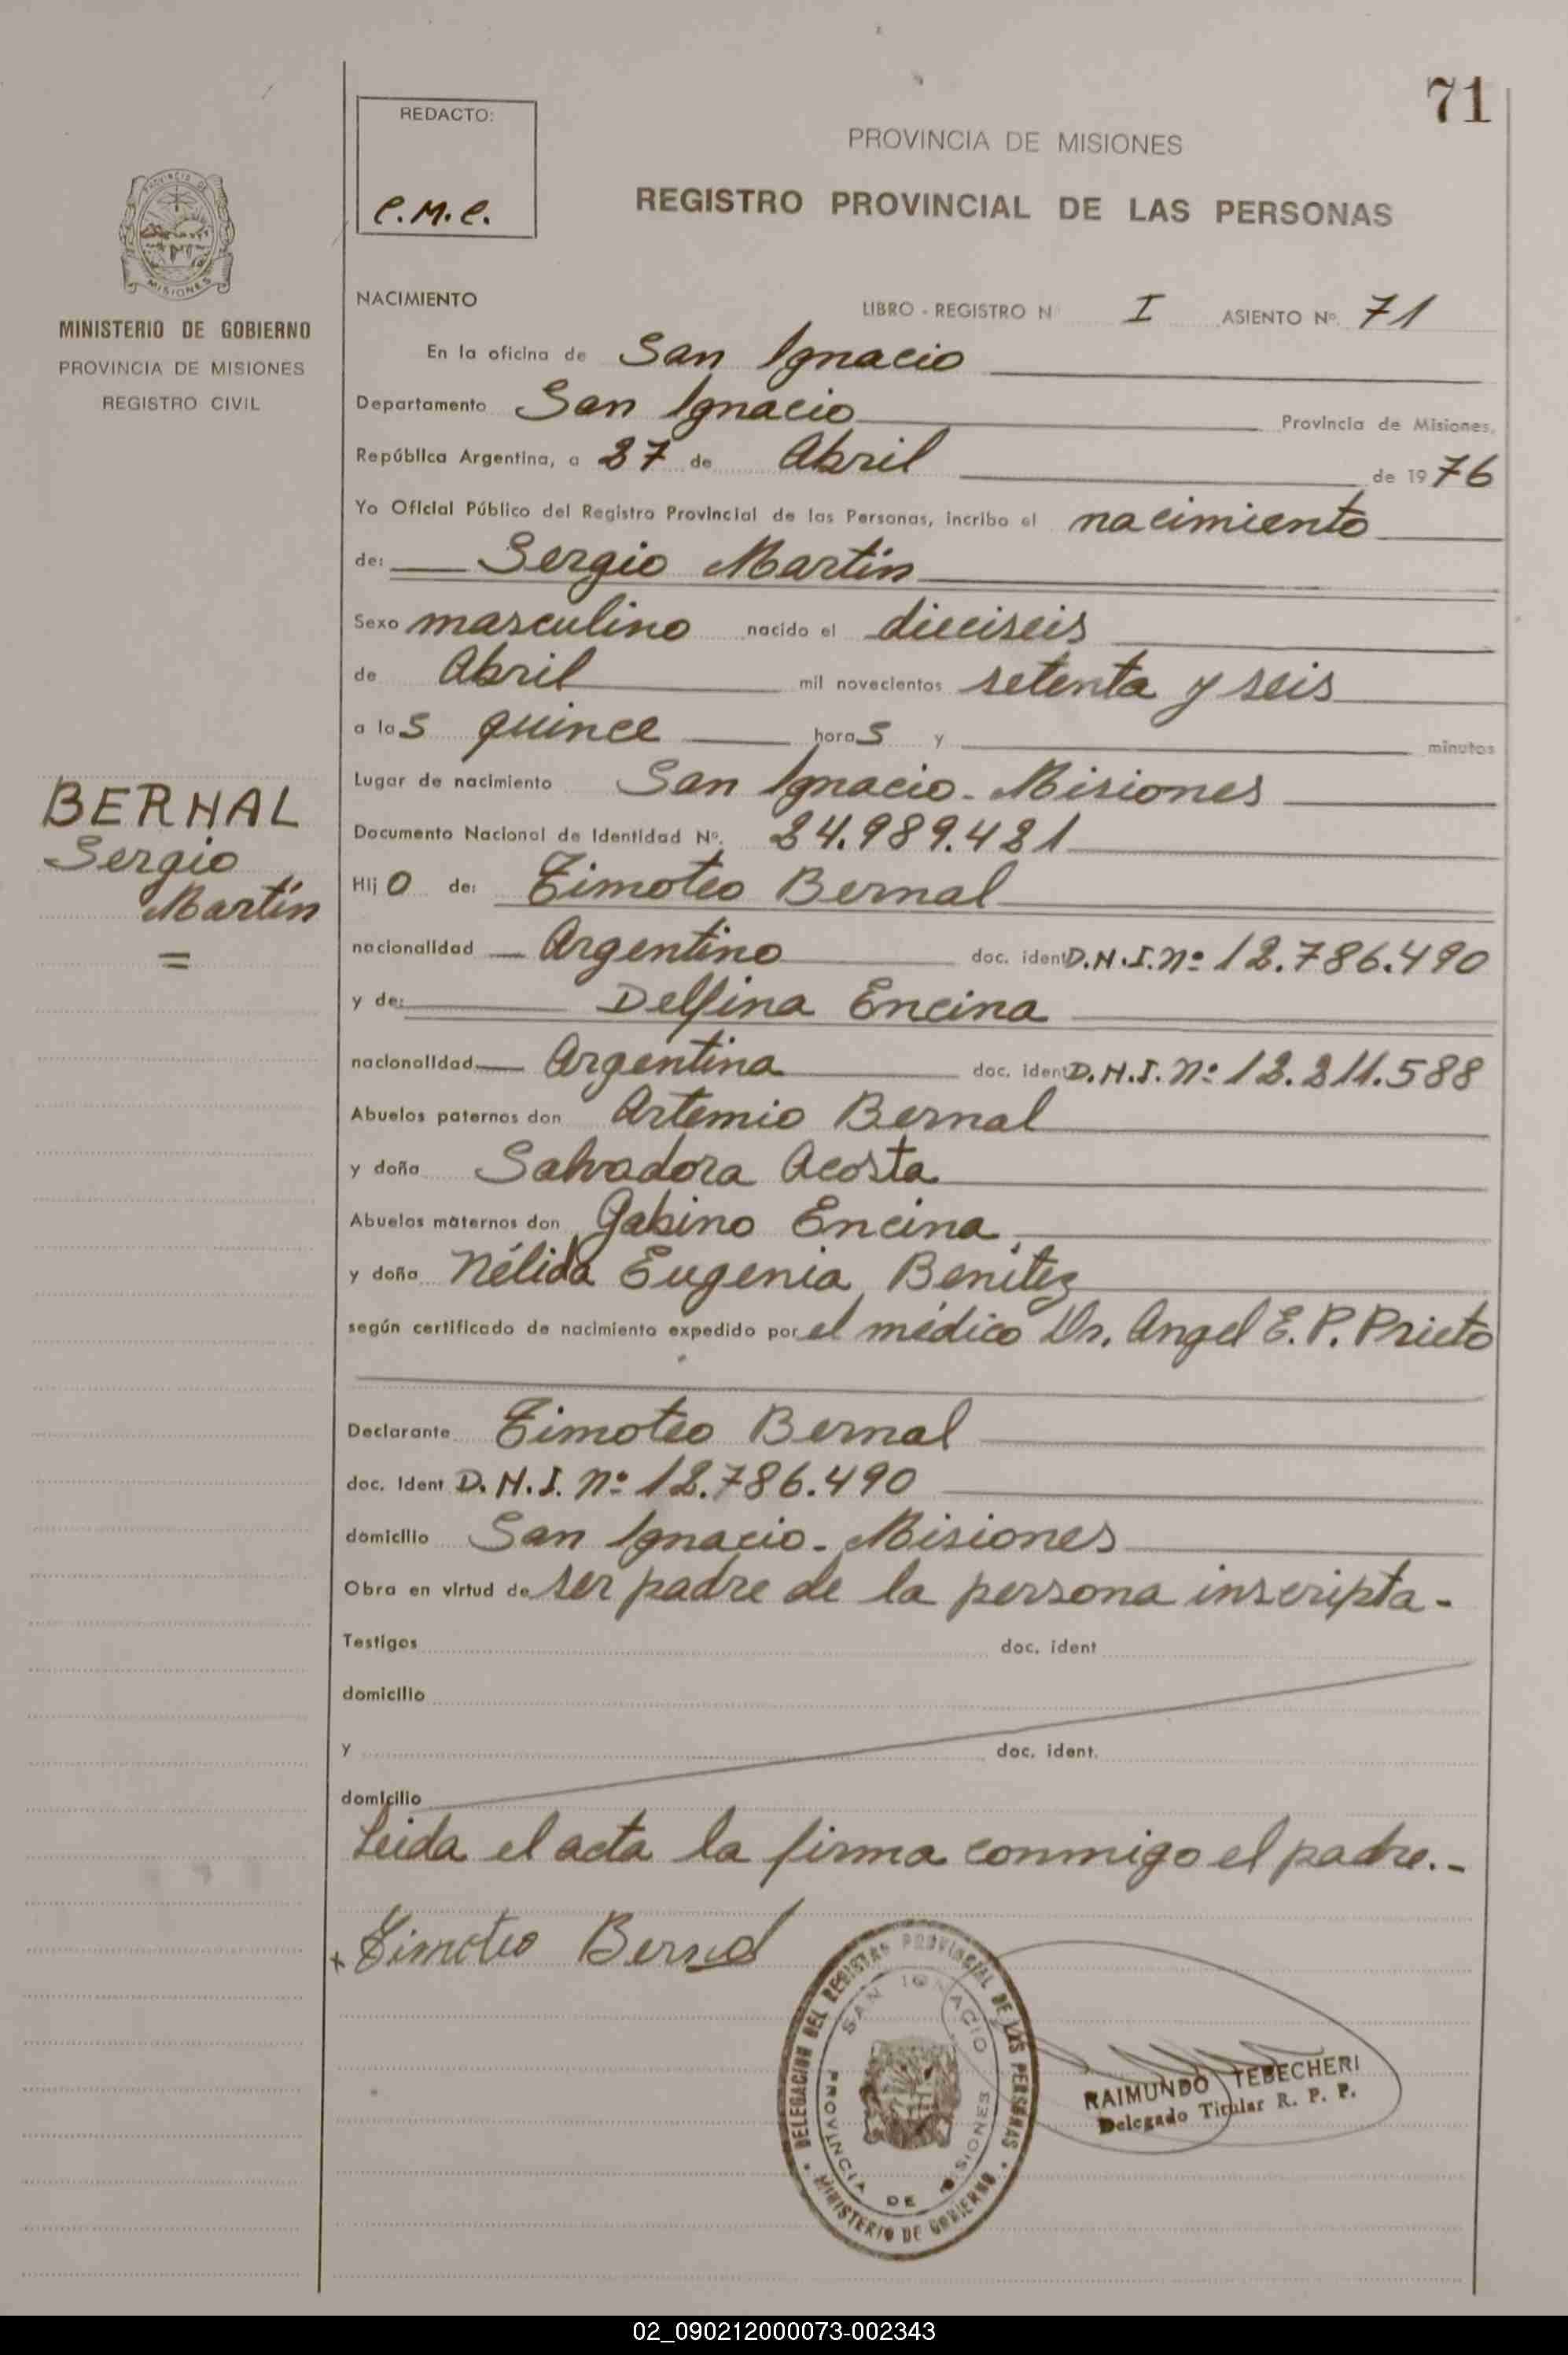 71
REDACTO:
C.M.C.
PROVINCIA DE MISIONES
REGISTRO PROVINCIAL DE LAS PERSONAS
PROVINCIA DE
MISIONES
MINISTERIO DE GOBIERNO
PROVINCIA DE MISIONES
REGISTRO CIVIL
NACIMIENTO LIBRO - REGISTRO N° I ASIENTO Nº. 71
En la oficina de San Ignacio
Departamento San Ignacio Provincia de Misiones,
República Argentina, a 27 de Abril de 1976
Yo Oficial Público del Registro Provincial de las Personas, incribo el nacimiento
de: Sergio Martín
Sexo masculino nacido el dieciseis
de Abril mil novecientos setenta y seis
a las quince horas y minutos
Lugar de nacimiento San Ignacio - Misiones
BERNAL
Sergio
Martín
=
Documento Nacional de Identidad Nº. 24.989.421
Hijo de: Timoteo Bernal
nacionalidad Argentino doc. ident D.N.I. Nº 12.786.490
y de: Delfina Encina
nacionalidad Argentina doc. ident D.N.I. Nº 12.211.588
Abuelos paternos don Artemio Bernal
y doña Salvadora Acosta
Abuelos maternos don Gabino Encina
y doña Nélida Eugenia Benítez
según certificado de nacimiento expedido por el médico Dr. Angel E. P. Prieto
Declarante Timoteo Bernal
doc. Ident D.N.I. Nº 12.786.490
domicilio San Ignacio - Misiones
Obra en virtud de ser padre de la persona inscripta -
Testigos doc. ident
domicilio
y doc. ident.
domicilio
Leida el acta la firma conmigo el padre.-
x Timoteo Bernal
DELEGACION DEL REGISTRO PROVINCIAL DE LAS PERSONAS
SAN IGNACIO
PROVINCIA DE MISIONES
MINISTERIO DE GOBIERNO
RAIMUNDO TEBECHERI
Delegado Titular R. P. P.
02_090212000073-002343